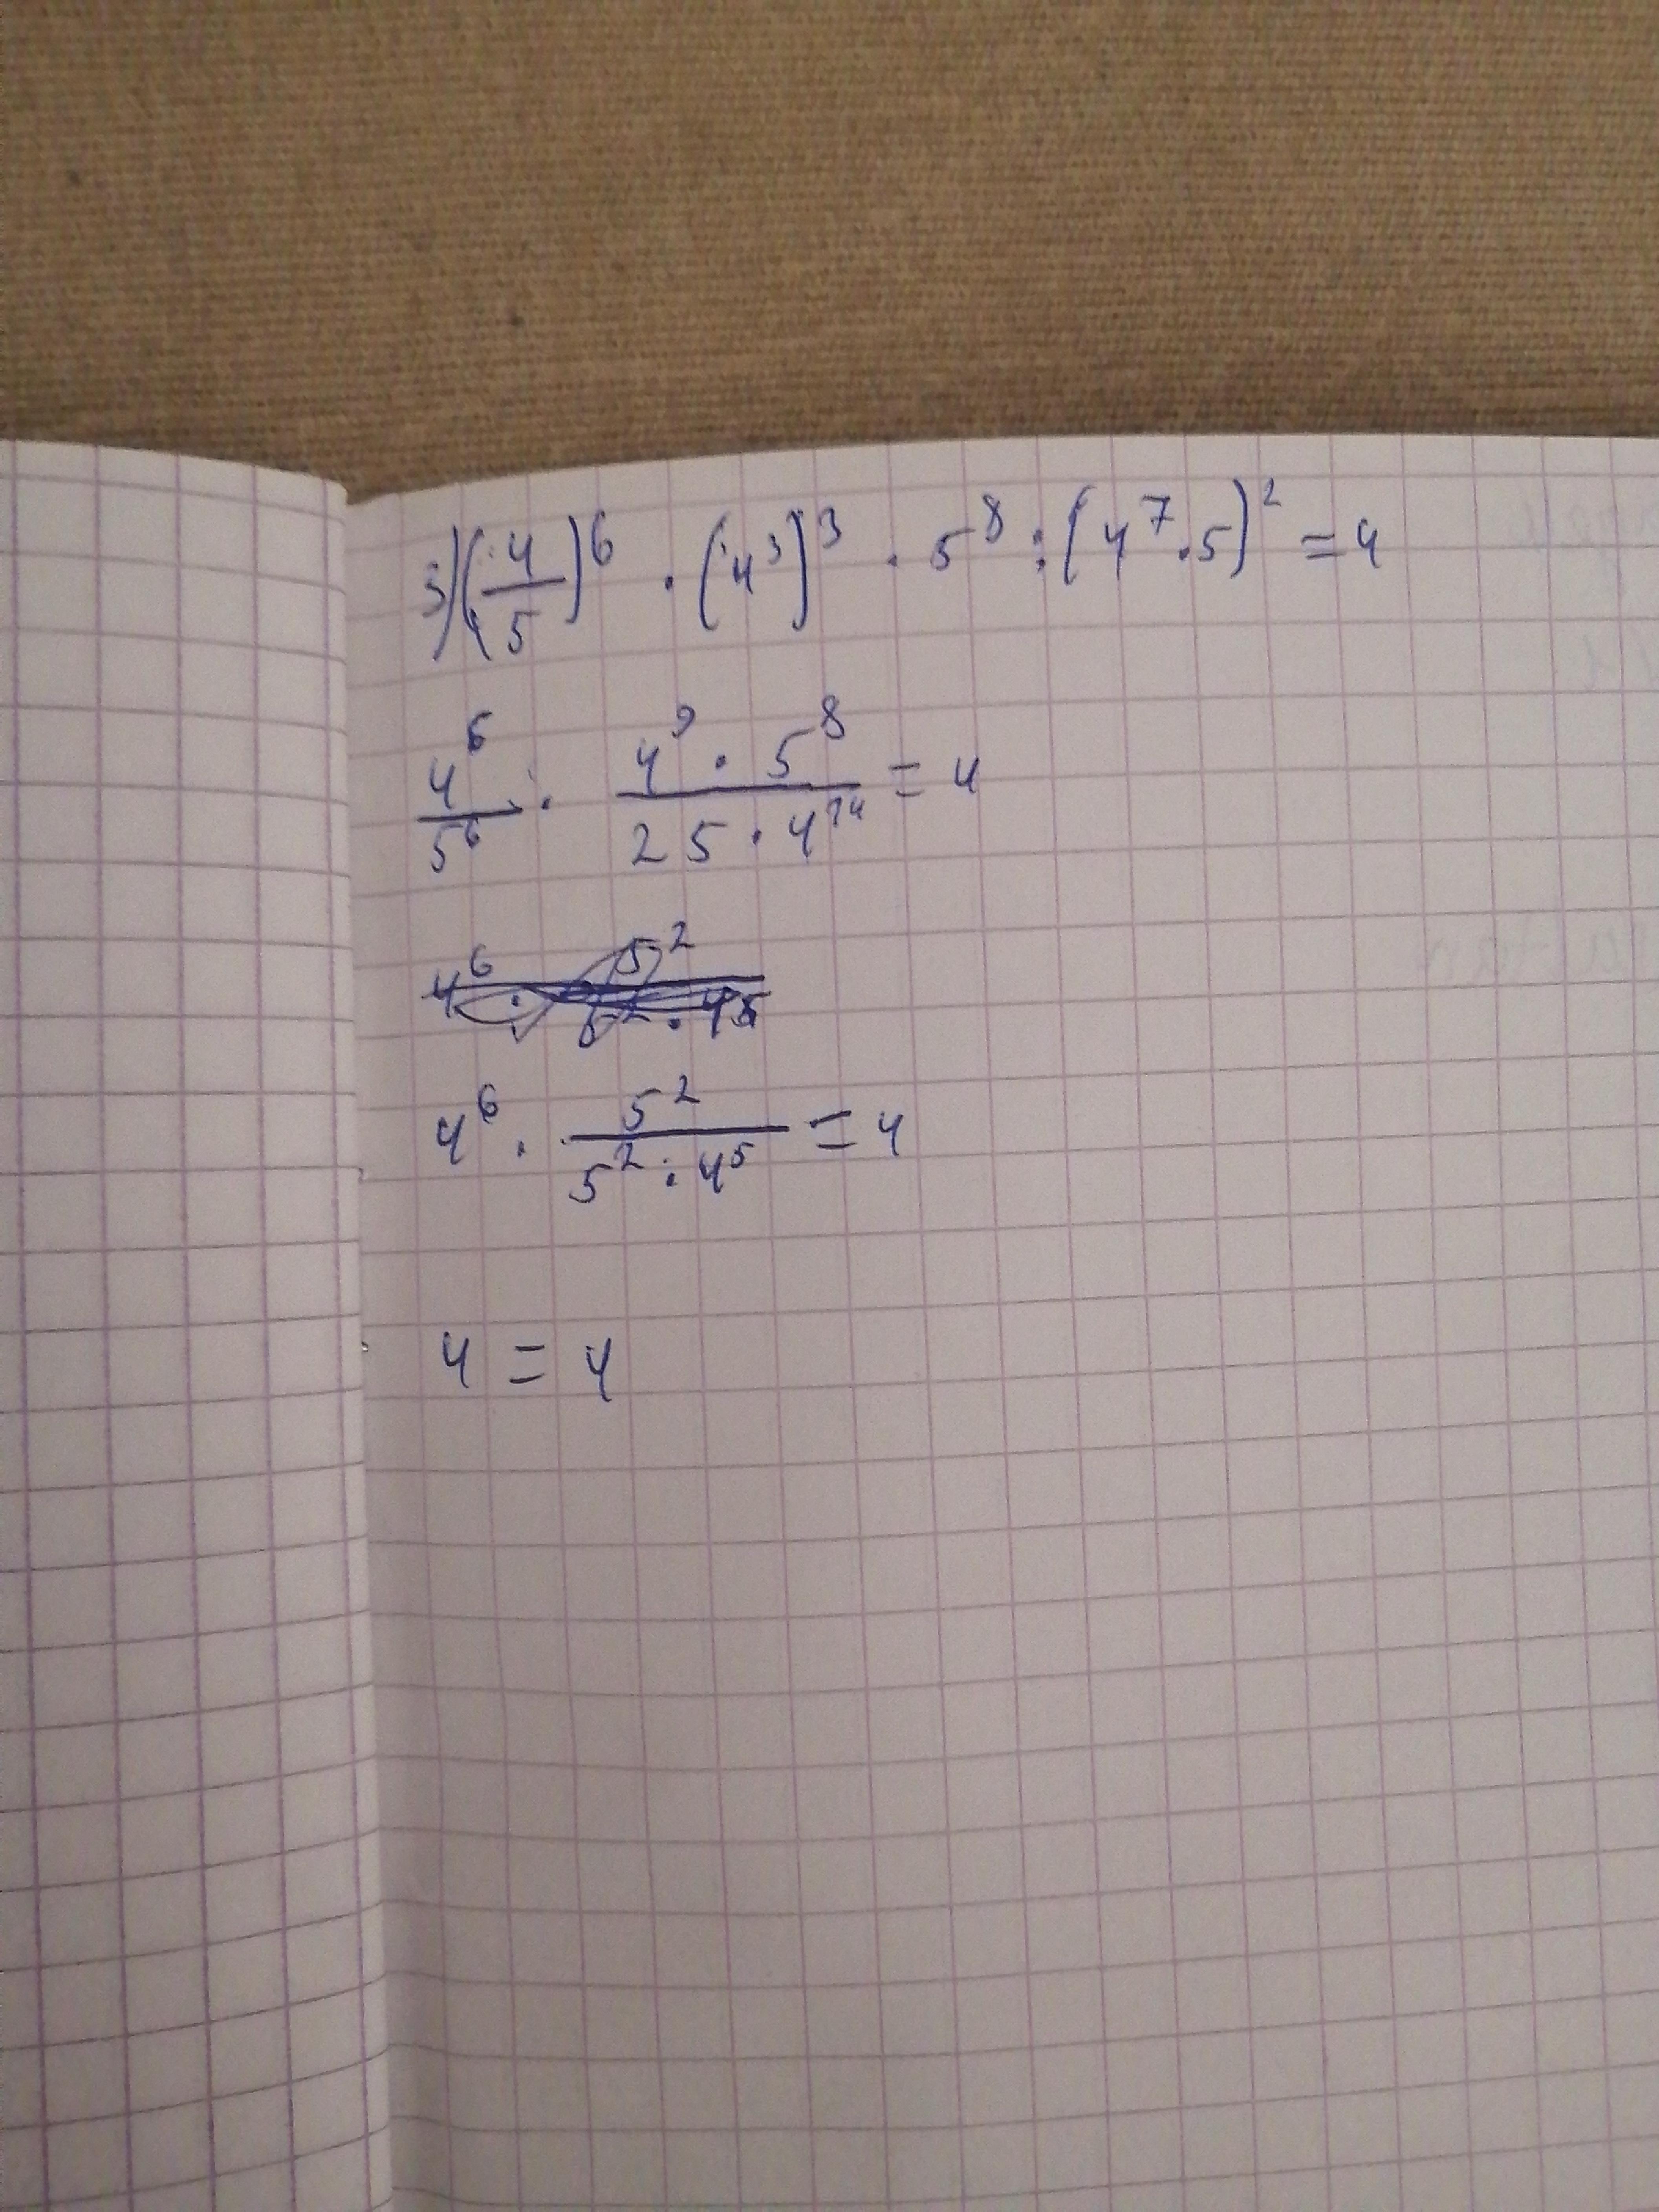 3) (4/5)^6 · (4^3)^3 · 5^8 : (4^7 · 5)^2 = 4
4^6/5^6 · (4^9 · 5^8)/(25 · 4^14) = 4
4^6 · 5^2/(5^2 · 4^5) = 4
4 = 4